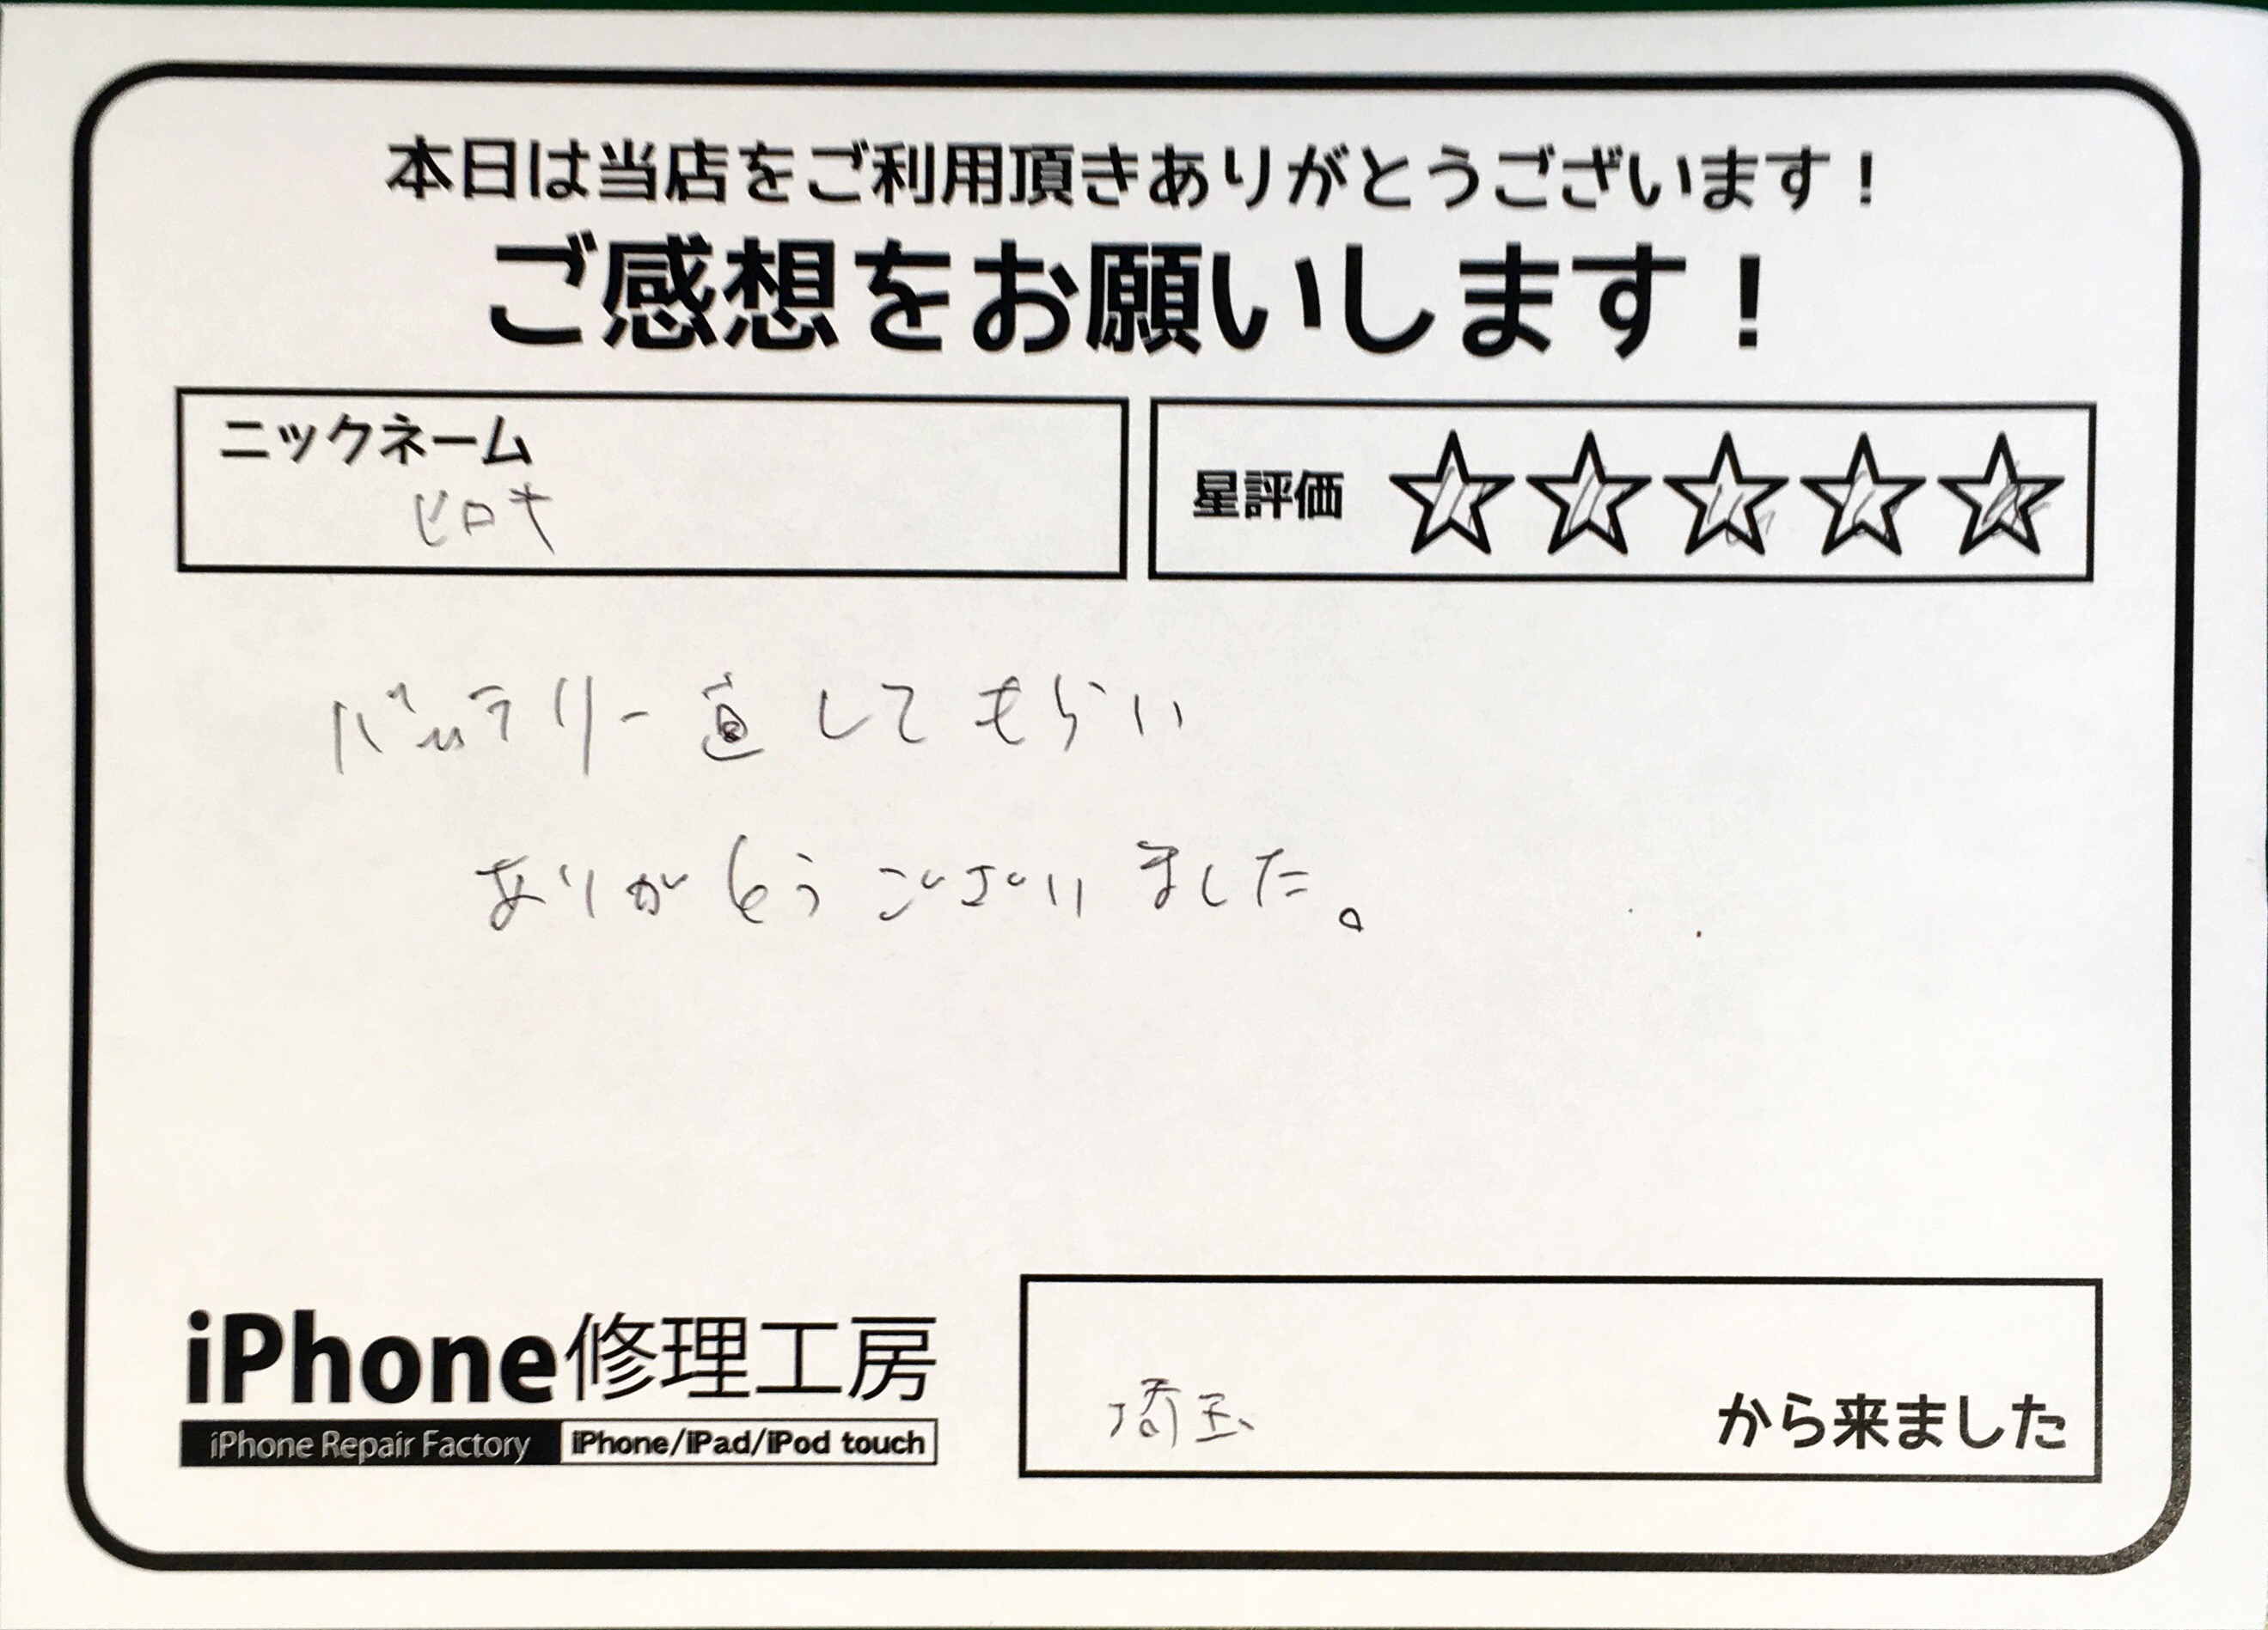 本日は当店をご利用頂きありがとうございます！
ご感想をお願いします！
ニックネーム
ヒロキ
星評価 ☆☆☆☆☆
バッテリー直してもらい
ありがとうございました。
iPhone修理工房
iPhone Repair Factory iPhone/iPad/iPod touch
埼玉 から来ました